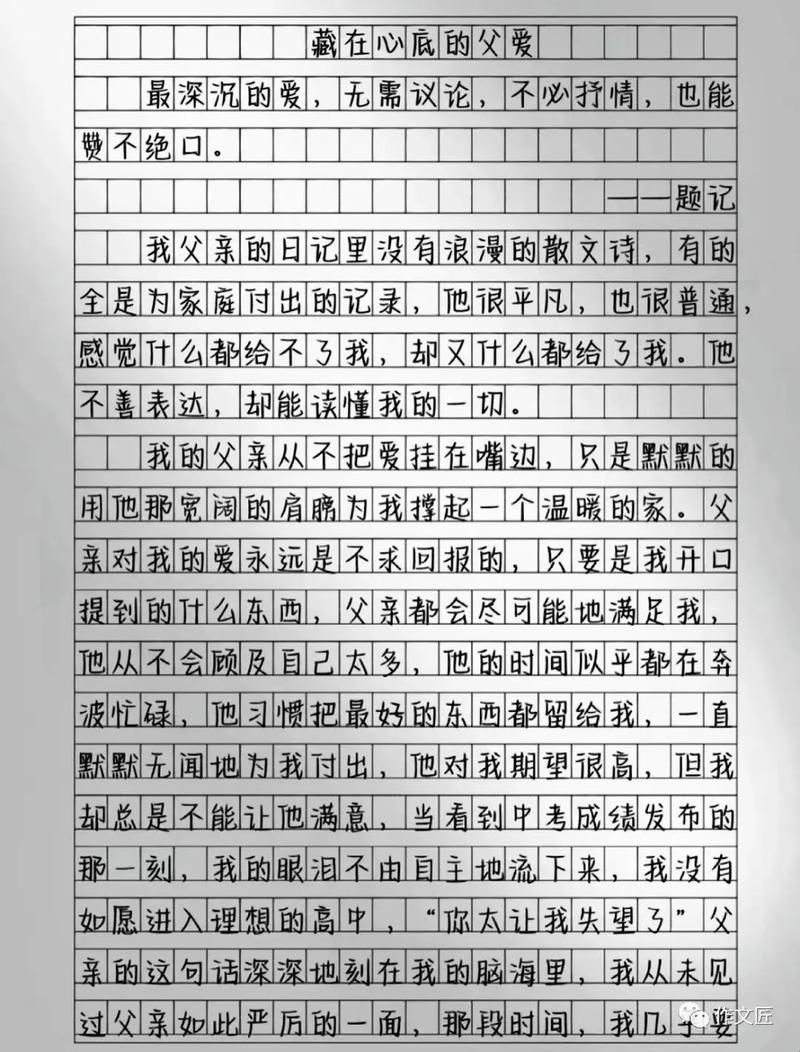 藏在心底的父爱
最深沉的爱，无需议论，不必抒情，也能
赞不绝口。
——题记
我父亲的日记里没有浪漫的散文诗，有的
全是为家庭付出的记录，他很平凡，也很普通，
感觉什么都给不了我，却又什么都给了我。他
不善表达，却能读懂我的一切。
我的父亲从不把爱挂在嘴边，只是默默的
用他那宽阔的肩膀为我撑起一个温暖的家。父
亲对我的爱永远是不求回报的，只要是我开口
提到的什么东西，父亲都会尽可能地满足我，
他从不会顾及自己太多，他的时间似乎都在奔
波忙碌，他习惯把最好的东西都留给我，一直
默默无闻地为我付出，他对我期望很高，但我
却总是不能让他满意，当看到中考成绩发布的
那一刻，我的眼泪不由自主地流下来，我没有
如愿进入理想的高中，“你太让我失望了”父
亲的这句话深深地刻在我的脑海里，我从未见
过父亲如此严厉的一面，那段时间，我几乎要
作文匠